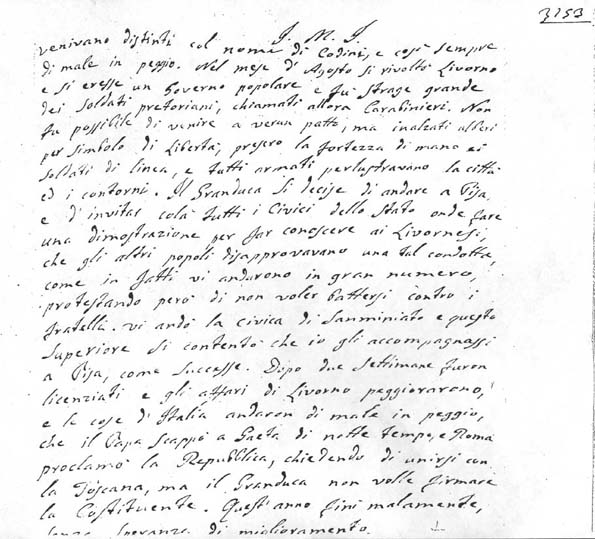 3153
J. M. J.
venivano distinti col nome di Codini, e così sempre
di male in peggio. Nel mese d'Agosto si rivoltò Livorno
e si eresse un Governo popolare e fu strage grande
dei soldati pretoriani, chiamati allora Carabinieri. Non
fu possibile di venire a verun patto, ma inalzati alberi
per simbolo di Libertà, presero la fortezza di mano ai
soldati di linea, e tutti armati perlustravano la città
ed i contorni. Il Granduca si decise di andare a Pisa,
e d'invitar colà tutti i Civici dello Stato onde fare
una dimostrazione per far conoscere ai Livornesi,
che gli altri popoli disapprovavano una tal condotta,
come in fatti vi andarono in gran numero,
protestando però di non voler battersi contro i
fratelli. Vi andò la Civica di Sanminiato e questo
Superiore si contentò che io gli accompagnassi
a Pisa, come successe. Dopo due settimane furon
licenziati e gli affari di Livorno peggiorarono,
e le cose d'Italia andaron di male in peggio,
che il Papa scappò a Gaeta di notte tempo, e Roma
proclamò la Repubblica, chiedendo di unirsi con
la Toscana, ma il Granduca non volle firmare
la Costituente. Quest'anno finì malamente,
senza speranza di miglioramento.